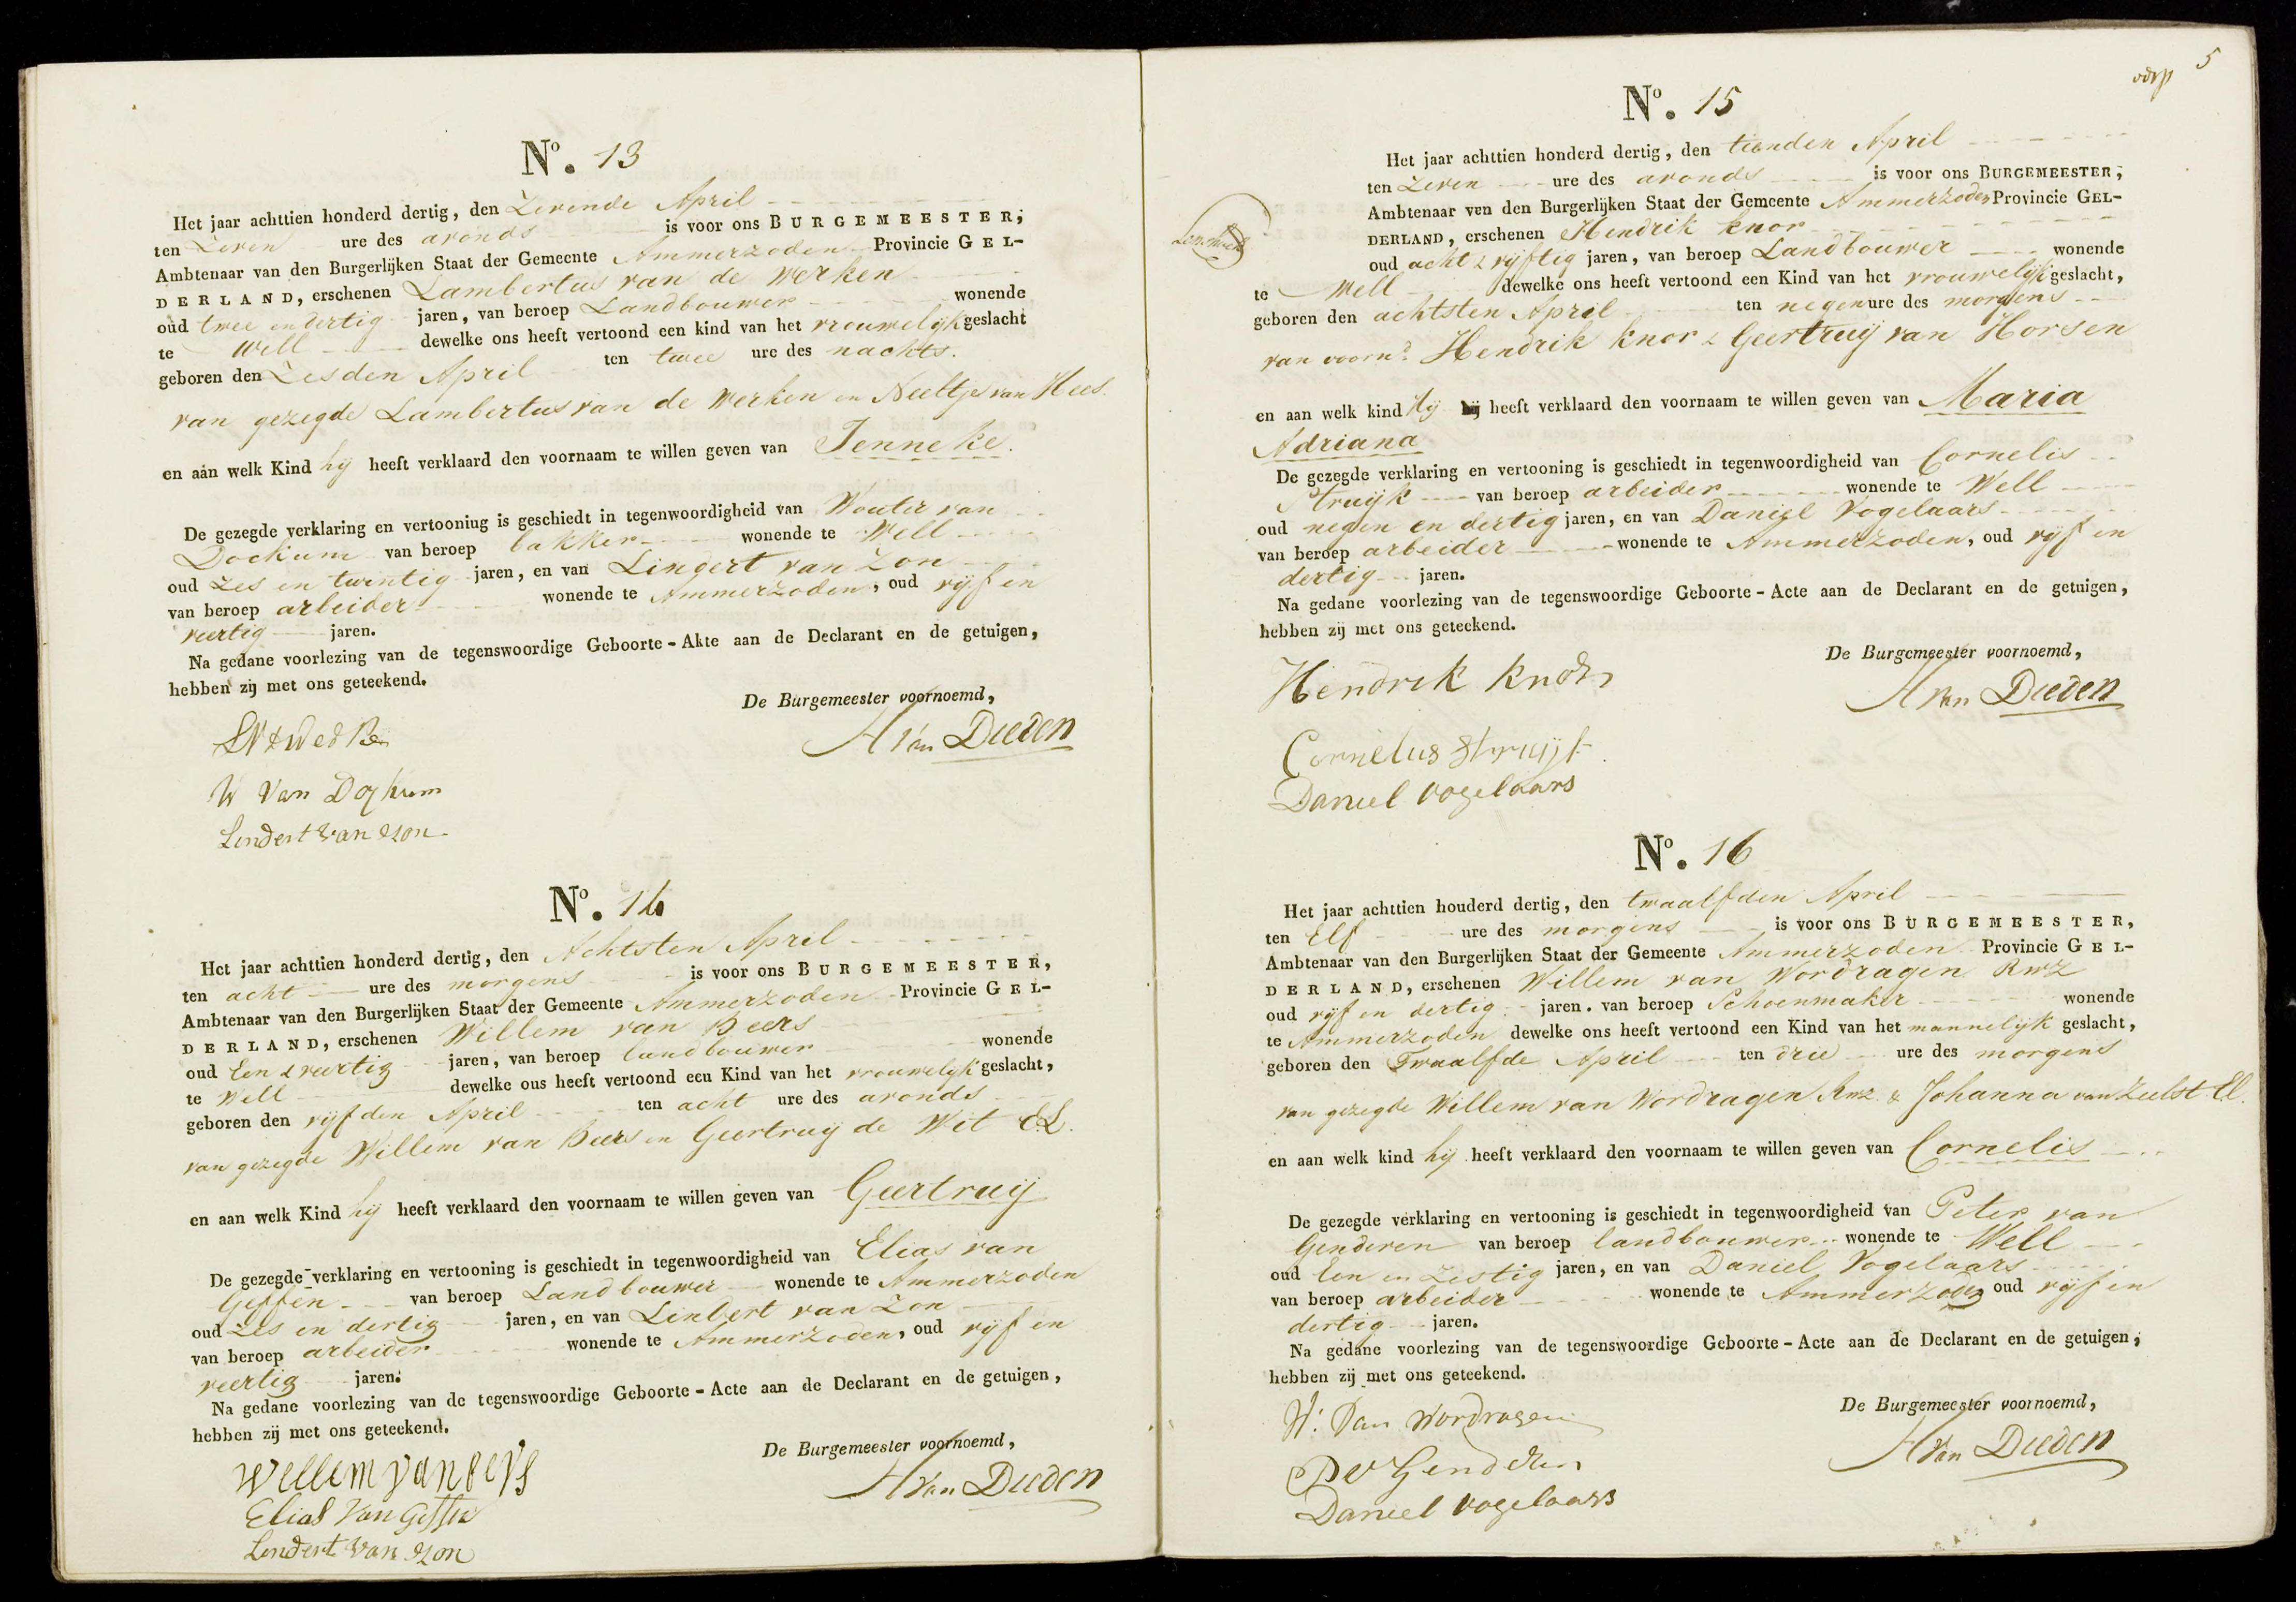 N.º 13
Het jaar achttien honderd dertig, den Zevende April
ten Zeven ure des avonds is voor ons BURGEMEESTER,
Ambtenaar van den Burgerlijken Staat der Gemeente Ammerzoden Provincie GEL-
DERLAND, erschenen Lambertus van de Werken
oud twee en dertig jaren, van beroep Landbouwer wonende
te Well dewelke ons heeft vertoond een kind van het vrouwelijk geslacht
geboren den Zesden April ten twee ure des nachts.
van gezegde Lambertus van de Werken en Neeltje van Hees.
en aan welk Kind hij heeft verklaard den voornaam te willen geven van Jenneke.
De gezegde verklaring en vertooniug is geschiedt in tegenwoordigheid van Wouter van
Dockum van beroep bakker wonende te Well
oud zes en twintig jaren, en van Lindert van Zon
van beroep arbeider wonende te Ammerzoden, oud vijf en
veertig jaren.
Na gedane voorlezing van de tegenswoordige Geboorte-Akte aan de Declarant en de getuigen,
hebben zij met ons geteekend.
De Burgemeester voornoemd,
A Van Dieden
W Van Dockum
Lendert van Zon
N.º 14
Het jaar achttien honderd dertig, den Achtsten April
ten acht ure des morgens is voor ons BURGEMEESTER,
Ambtenaar van den Burgerlijken Staat der Gemeente Ammerzoden Provincie GEL-
DERLAND, erschenen Willem van Beers
oud Een & veertig jaren, van beroep landbouwer wonende
te Well dewelke ons heeft vertoond een Kind van het vrouwelijk geslacht,
geboren den vijfden April ten acht ure des avonds
van gezegde Willem van Beers en Geertruij de Wit EL.
en aan welk Kind hij heeft verklaard den voornaam te willen geven van Geertruij
De gezegde verklaring en vertooning is geschiedt in tegenwoordigheid van Elias van
Geffen van beroep Landbouwer wonende te Ammerzoden
oud zes en dertig jaren, en van Lindert van Zon
van beroep arbeider wonende te Ammerzoden, oud vijf en
veertig jaren.
Na gedane voorlezing van de tegenswoordige Geboorte-Acte aan de Declarant en de getuigen,
hebben zij met ons geteekend.
De Burgemeester voornoemd,
Willem van Bers
A Van Dieden
Elias Van Geffen
Lendert van Zon
5
N.º 15
Het jaar achttien honderd dertig, den tienden April
ten Zeven ure des avonds is voor ons BURGEMEESTER,
Ambtenaar ven den Burgerlijken Staat der Gemeente Ammerzoden Provincie GEL-
DERLAND, erschenen Hendrik Knor
oud acht & vijftig jaren, van beroep Landbouwer wonende
te Well dewelke ons heeft vertoond een Kind van het vrouwelijk geslacht,
geboren den achtsten April ten negen ure des morgens
van voornd. Hendrik Knor & Geertruij van Horsen
en aan welk kind Hij heeft verklaard den voornaam te willen geven van Maria
Adriana
De gezegde verklaring en vertooning is geschiedt in tegenwoordigheid van Cornelis
Struijk van beroep arbeider wonende te Well
oud negen en dertig jaren, en van Daniel Vogelaars
van beroep arbeider wonende te Ammerzoden, oud vijf en
dertig jaren.
Na gedane voorlezing van de tegenswoordige Geboorte-Acte aan de Declarant en de getuigen,
hebben zij met ons geteekend.
De Burgemeester voornoemd,
Hendrik Knor
A Van Dieden
Cornelus Struijk
Daniel vogelaars
N.º 16
Het jaar achttien houderd dertig, den twaalfden April
ten Elf ure des morgens is voor ons BURGEMEESTER,
Ambtenaar van den Burgerlijken Staat der Gemeente Ammerzoden Provincie GEL-
DERLAND, erschenen Willem van Wordragen Rwz
oud vijf en dertig jaren. van beroep Schoenmaker wonende
te Ammerzoden dewelke ons heeft vertoond een Kind van het mannelijk geslacht,
geboren den Twaalfde April ten drie ure des morgens
van gezegde Willem van Wordragen Rwz. & Johanna van Zeelst El.
en aan welk kind hij heeft verklaard den voornaam te willen geven van Cornelis
De gezegde verklaring en vertooning is geschiedt in tegenwoordigheid van Peter van
Genderen van beroep landbouwer wonende te Well
oud Een en Zestig jaren, en van Daniel Vogelaars
van beroep arbeider wonende te Ammerzoden oud vijf en
dertig jaren.
Na gedane voorlezing van de tegenswoordige Geboorte-Acte aan de Declarant en de getuigen,
hebben zij met ons geteekend.
De Burgemeester voornoemd,
W: Van Wordragen
A Van Dieden
P V Genderen
Daniel vogelaars